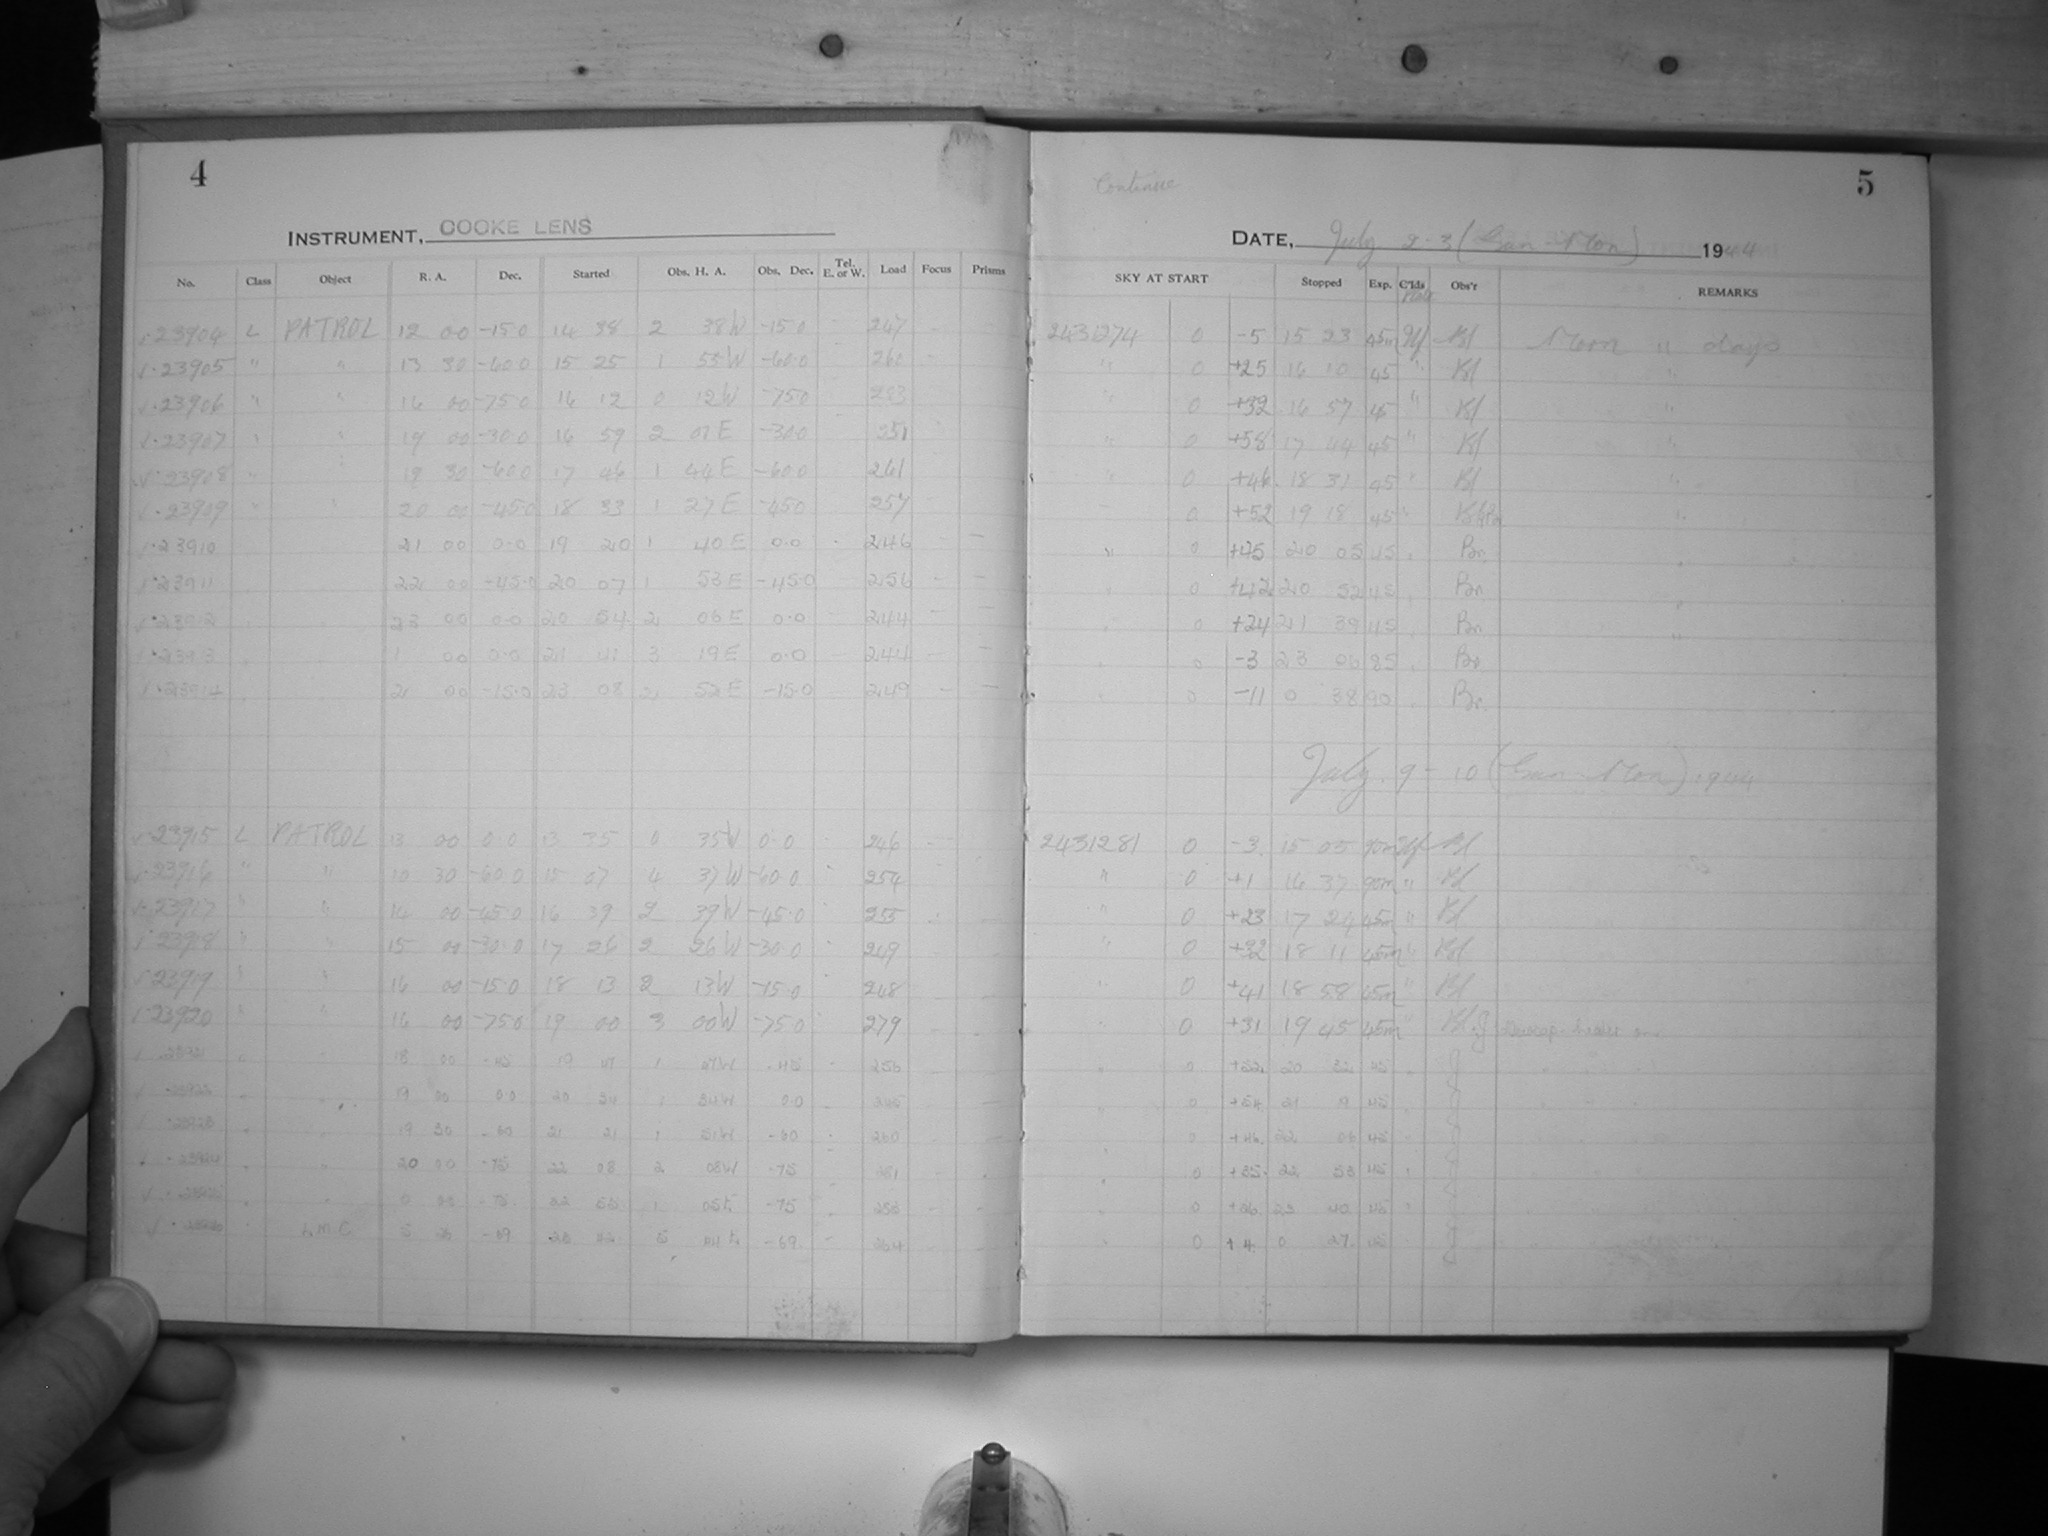 4
INSTRUMENT, COOKE LENS
No. Class Object R. A. Dec. Started Obs. H. A. Obs. Dec. Tel. E. or W. Load Focus Prisms
23904 L PATROL 12 00 -15.0 14 38 2 38W -15.0 247
23905 " " 13 30 -60.0 15 25 1 55W -60.0 260
23906 " " 16 00 -75.0 16 12 0 12W -75.0
23907 " " 19 00 -30.0 16 59 2 01E -30.0 251
23908 " " 19 30 -60.0 17 46 1 44E -60.0 261
23909 " " 20 00 -45.0 18 33 1 27E -45.0 257
23910 21 00 0.0 19 20 1 40E 0.0 246 - -
23911 22 00 -45.0 20 07 1 53E -45.0 256 - -
23912 23 00 0.0 20 54 2 06E 0.0 244 - -
23913 1 00 0.0 21 41 3 19E 0.0 244 - -
23914 2 00 -15.0 23 08 2 52E -15.0 249 - -
23915 L PATROL 13 00 0.0 13 35 0 35W 0.0 246
23916 " " 10 30 -60.0 15 07 4 37W -60.0 254
23917 " " 14 00 -45.0 16 39 2 39W -45.0 255
23918 " " 15 00 -30.0 17 26 2 26W -30.0 249
23919 " " 16 00 -15.0 18 13 2 13W -15.0 248
23920 " " 16 00 -75.0 19 00 3 00W -75.0 279
23921 18 00 -45 19 47 1 47W -45 256
23922 19 00 0.0 20 34 1 34W 0.0
23923 19 30 -60 21 21 1 51W -60 260
23924 20 00 -75 22 08 2 08W -75 281
0 00 -75 22 55 1 05E -75
L.M.C. -69 23 42 5 44E -69 264
Continue
5
DATE, July 2-3 (Sun-Mon) 1944
SKY AT START Stopped Exp. C'lds Plate Obs'r REMARKS
2431274 0 -5 15 23 45m Bl Moon 11 days
" 0 +25 16 10 45 " Bl "
" 0 +32 16 57 45 " Bl "
" 0 +58 17 44 45 " Bl "
" 0 +46 18 31 45 " Bl "
" 0 +52 19 18 45 " "
" 0 +45 20 05 45 Br. "
" 0 +42 20 52 45 Br. "
" 0 +24 21 39 45 Br. "
" 0 -3 23 06 85 Br.
" 0 -11 0 38 90 Br.
July 9-10 (Sun-Mon) 1944
2431281 0 -3 15 05 90m Bl
" 0 +1 16 37 90m " Bl
" 0 +23 17 24 45m " Bl
" 0 +32 18 11 45m " Bl
" 0 +41 18 58 45m " Bl
" 0 +31 19 45 45m " Bl. J
" 0 +52 20 32 45 J
" 0 +54 21 19 45 J
" 0 +46 22 06 45 J
" 0 +35 22 53 45 J
" 0 +26 23 40 45 J
" 0 +4 0 27 45 J